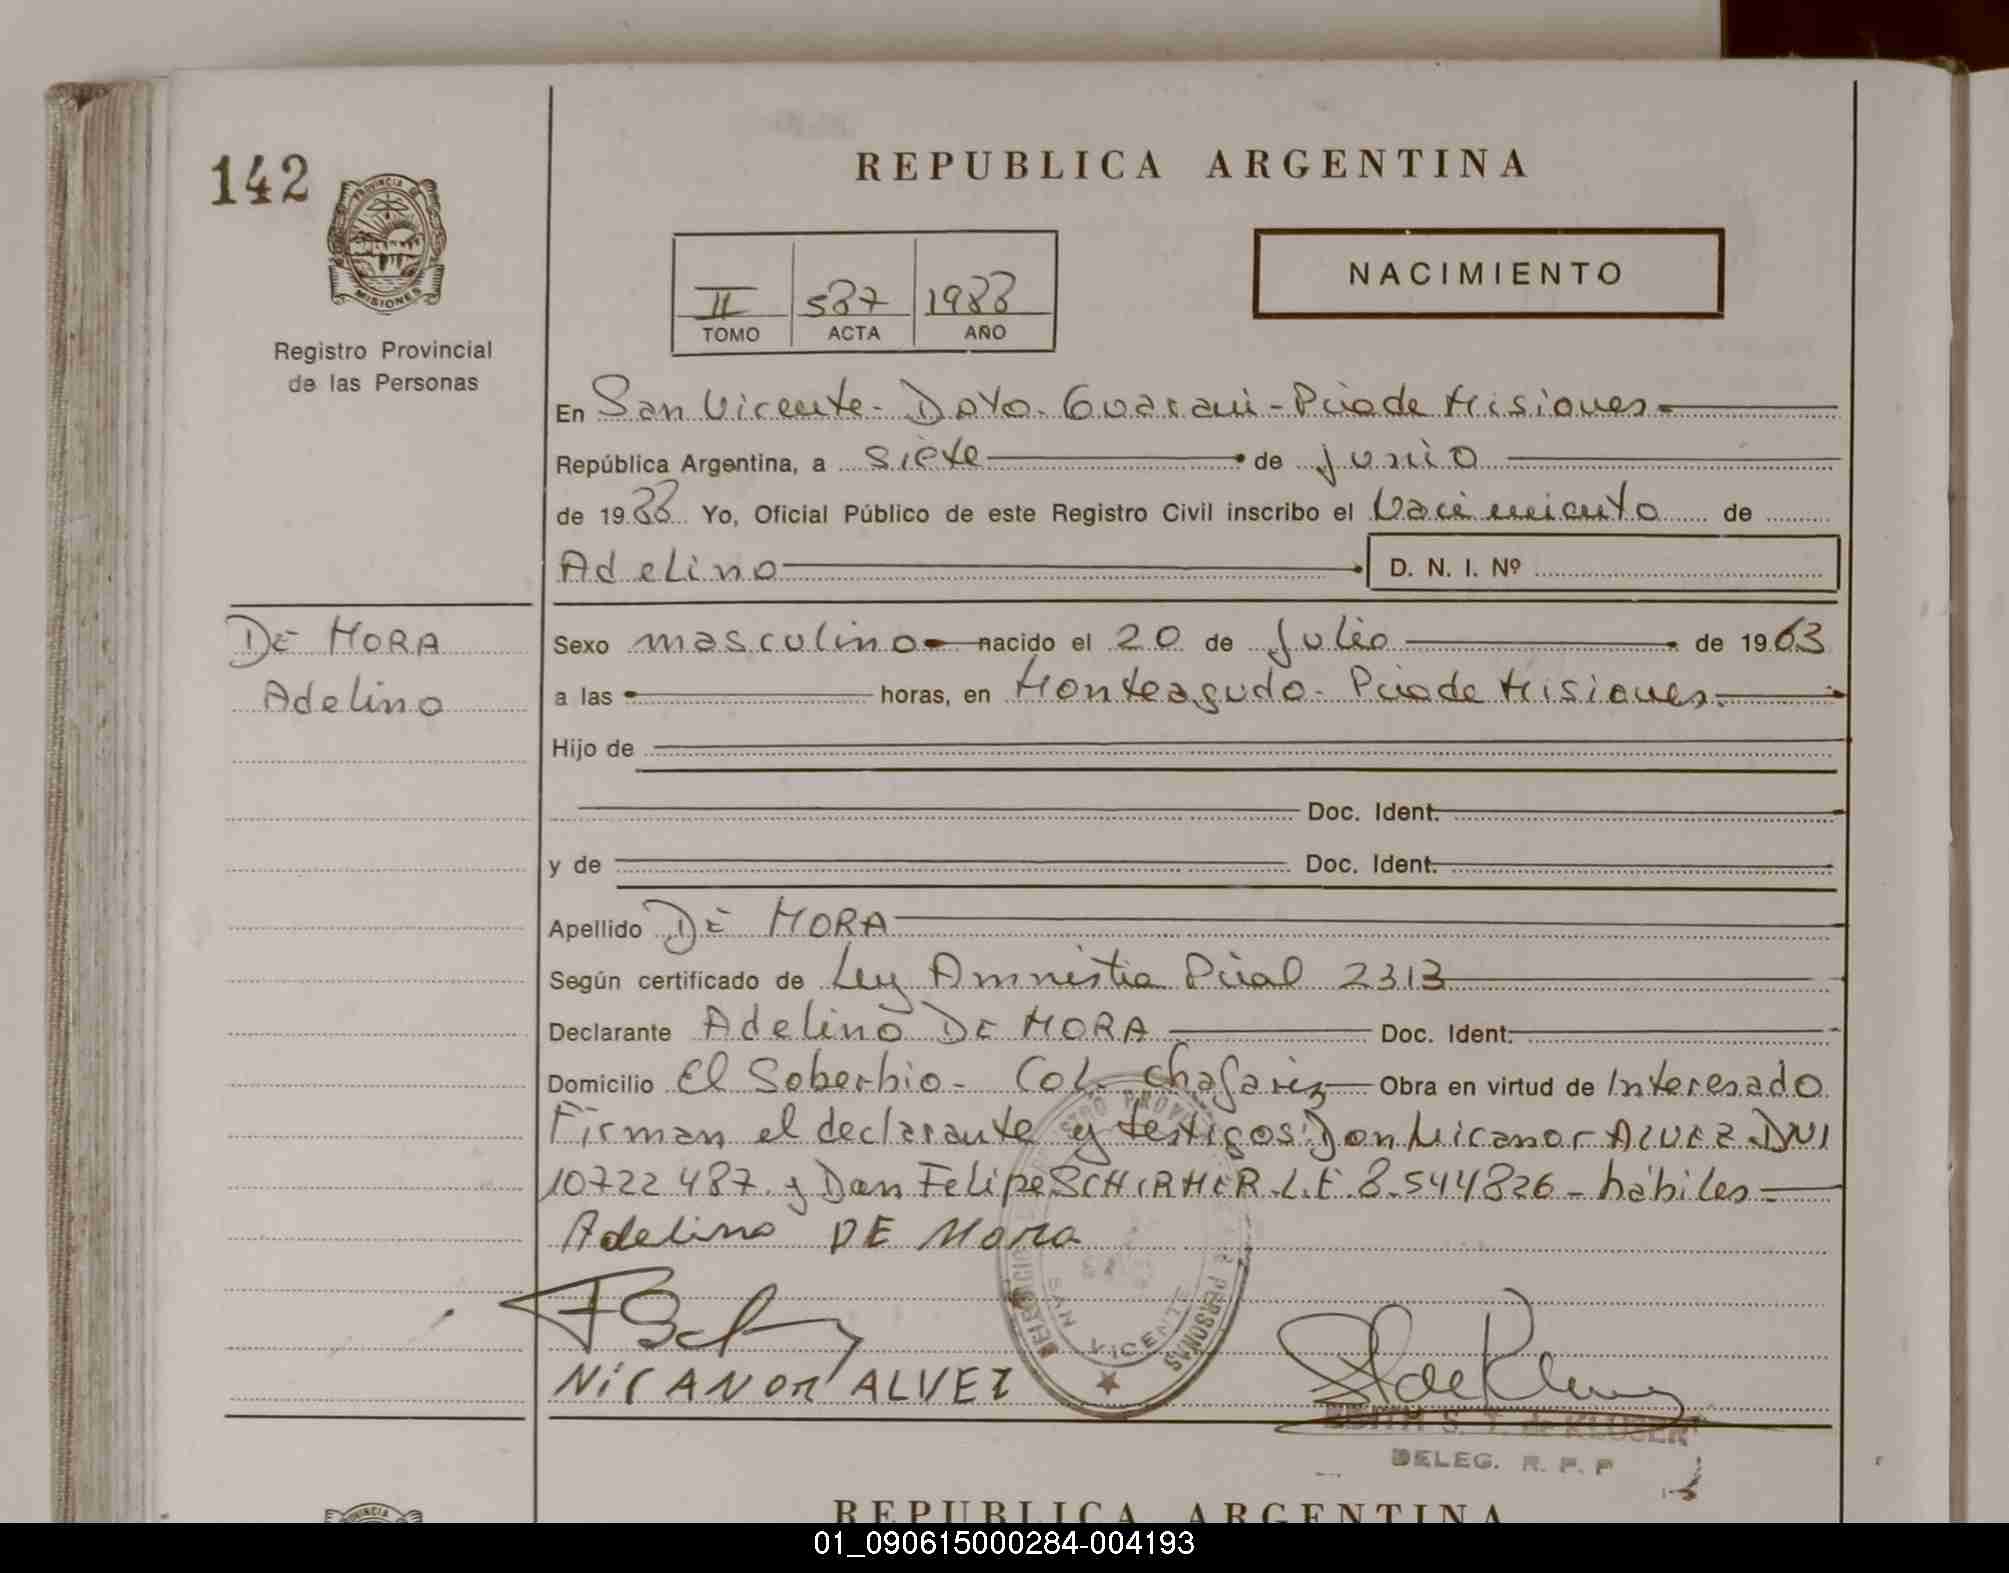 142
PROVINCIA DE
MISIONES
Registro Provincial
de las Personas
REPUBLICA ARGENTINA
II 587 1988
TOMO ACTA AÑO
NACIMIENTO
En San Vicente - Dpto. Guarani - Pcia de Misiones
República Argentina, a siete de junio
de 1988 Yo, Oficial Público de este Registro Civil inscribo el Nacimiento de
Adelino D. N. I. Nº
DE MORA
Adelino
Sexo masculino nacido el 20 de Julio de 1963
a las horas, en Monteagudo - Pcia de Misiones
Hijo de
Doc. Ident.
y de Doc. Ident.
Apellido DE MORA
Según certificado de Ley Amnistia Pcial 2313
Declarante Adelino DE MORA Doc. Ident.
Domicilio El Soberbio - Col. Chafariz Obra en virtud de Interesado
Firman el declarante y testigos Don Nicanor ALVEZ DNI
10722 487 y Don Felipe SCHIRMER L.E 8.544826 - hábiles
Adelino DE Mora
NICANOR ALVEZ
SAN VICENTE
PERSONAS
S. T. de KLUSER
DELEG. R. P. P
REPUBLICA ARGENTINA
01_090615000284-004193